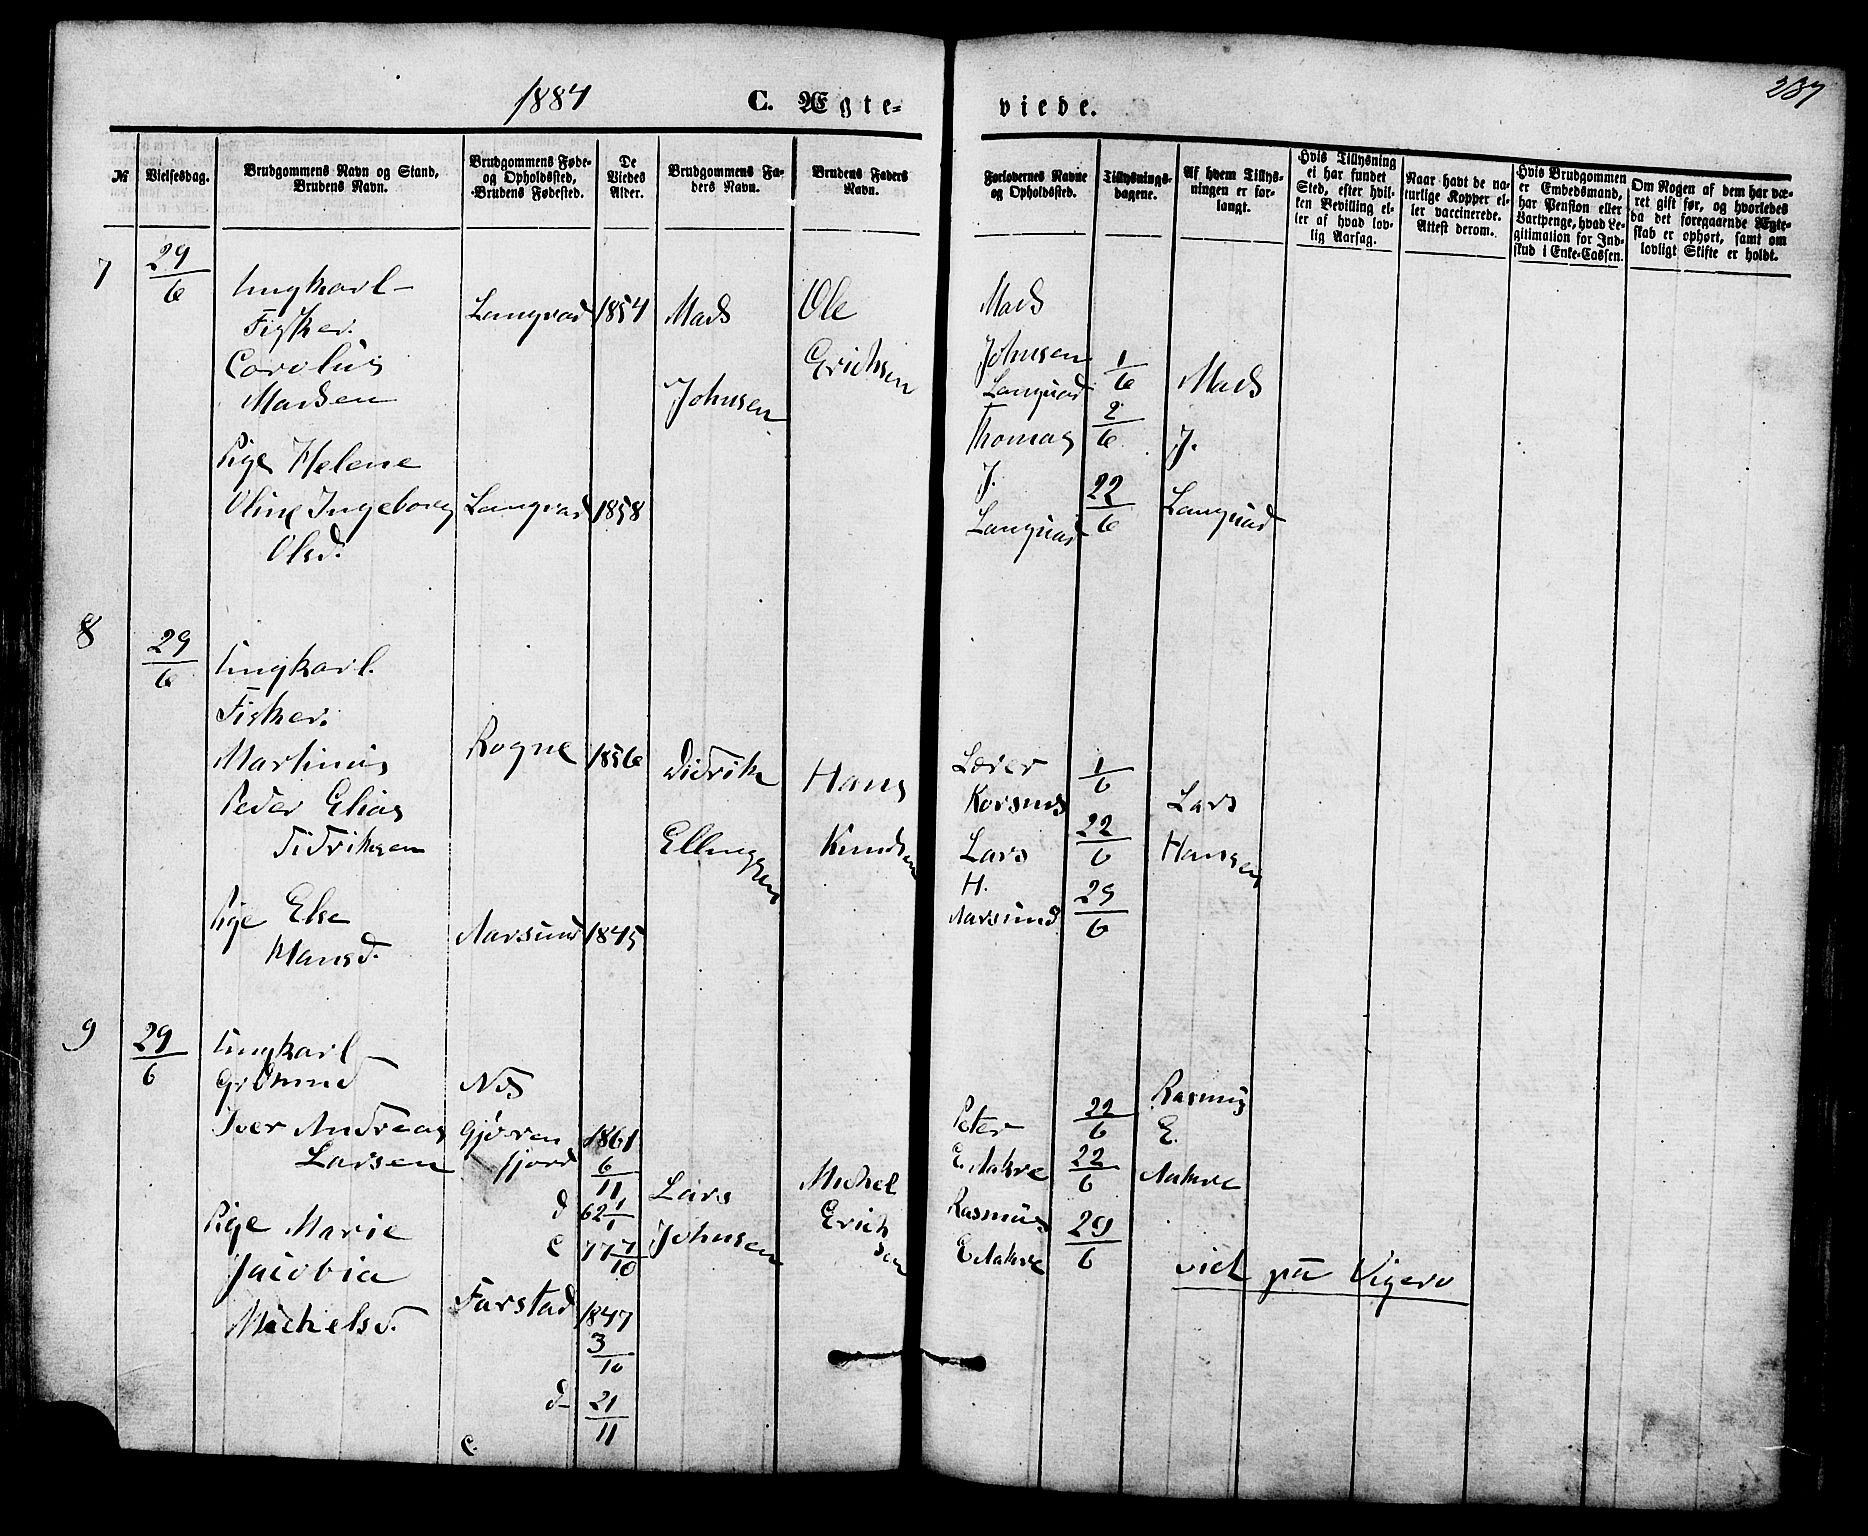 1884 C. Ægte= viede. 237
№ Vielsesdag. Brudgommens Navn og Stand, Brudens Navn. Brudgommens Føde- og Opholdssted, Brudens Fødested. De Viedes Alder. Brudgommens Faders Navn. Brudens Faders Navn. Forlovernes Navne og Opholdssted. Tillysningsdagene. Af hvem Tillysningen er forlangt. Hvis Tillysning ei har fundet Sted, efter hvilken Bevilling eller af hvad lovlig Aarsag. Naar havt de naturlige Kopper eller vaccinerede. Attest derom. Hvis Brudgommen er Embedsmand, har Pension eller Vartpenge, hvad Legitimation for Indskud i Enke-Cassen. Om Nogen af dem har været gift før, og hvorledes da det foregaaende Ægteskab er ophørt, samt om lovligt Skifte er holdt.
7 29/6 Ungkarl
Fisker. Langvad 1854 Mads Ole Mads
Carolus Erichsen Johnsen 1/6
Madsen Johnsen Langvad Mads
Pige Helene Thomas 2/6 J.
Oline Ingeborg Langvad 1858 J. 22/6 Langvad
Olsd. Langvad
8 29/6 Ungkarl.
Fisker.
Martinus Rogne 1856 Didrik Hans 1/6
Peder Elias Korsnes Lars
Didriksen Ellingsen Knudsen Lars 22/6 Hansen
Pige Else H. 29/6
Hansd. Aarsund 1845 Aarsund
9 29/6 Ungkarl
Nds
Iver Andreas 1861 Peter 22/6 Rasmus
Larsen fjord 6/11 E. Aakre 22/6 E.
d 62 1/1 Lars Michel Aakre
Pige Marie c 77 7/10 Johnsen Erichsen Rasmus 29/6
Jacobia E Aakre viet på Vigero
Michelsd. Farstad 1847
3/10
d 21/11
c.